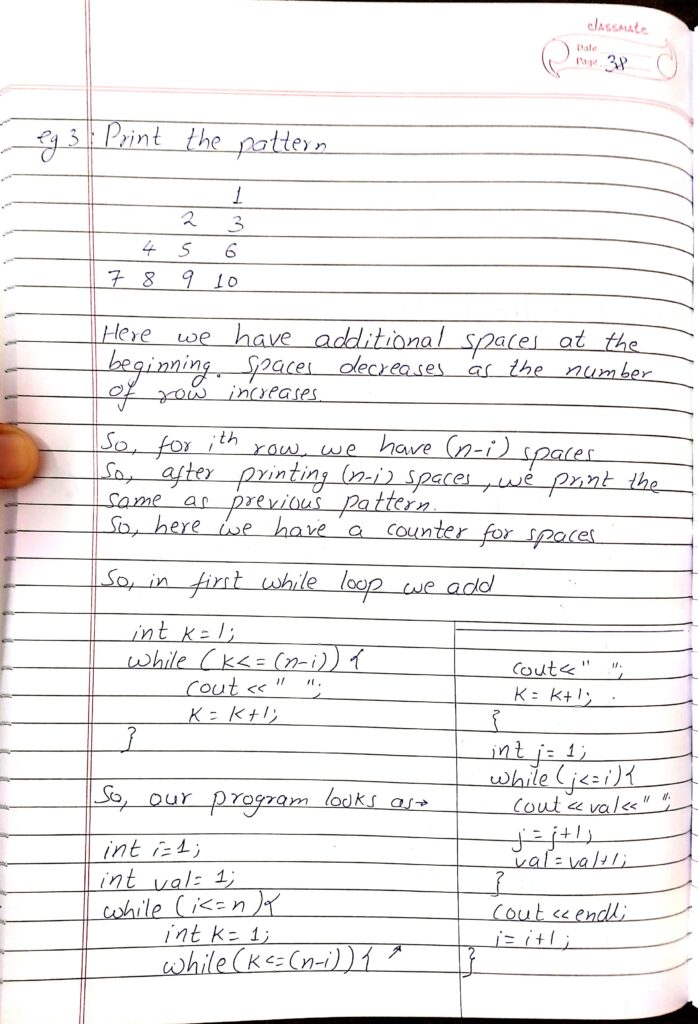 classmate
Date
Page 38
eg 3: Print the pattern
1
2 3
4 5 6
7 8 9 10
Here we have additional spaces at the
beginning. Spaces decreases as the number
of row increases.
So, for ith row, we have (n-i) spaces
So, after printing (n-i) spaces, we print the
same as previous pattern.
So, here we have a counter for spaces
So, in first while loop we add
int k=1;
while (k<=(n-i)) {
cout << " ";
k = k+1;
}
So, our program looks as→
int i=1;
int val= 1;
while (i<=n){
int k= 1;
while(k<=(n-i)) { ↗
cout<<" ";
k= k+1;
}
int j= 1;
while(j<=i){
cout<<val<<" ";
j=j+1;
val=val+1;
}
cout<<endl;
i=i+1;
}